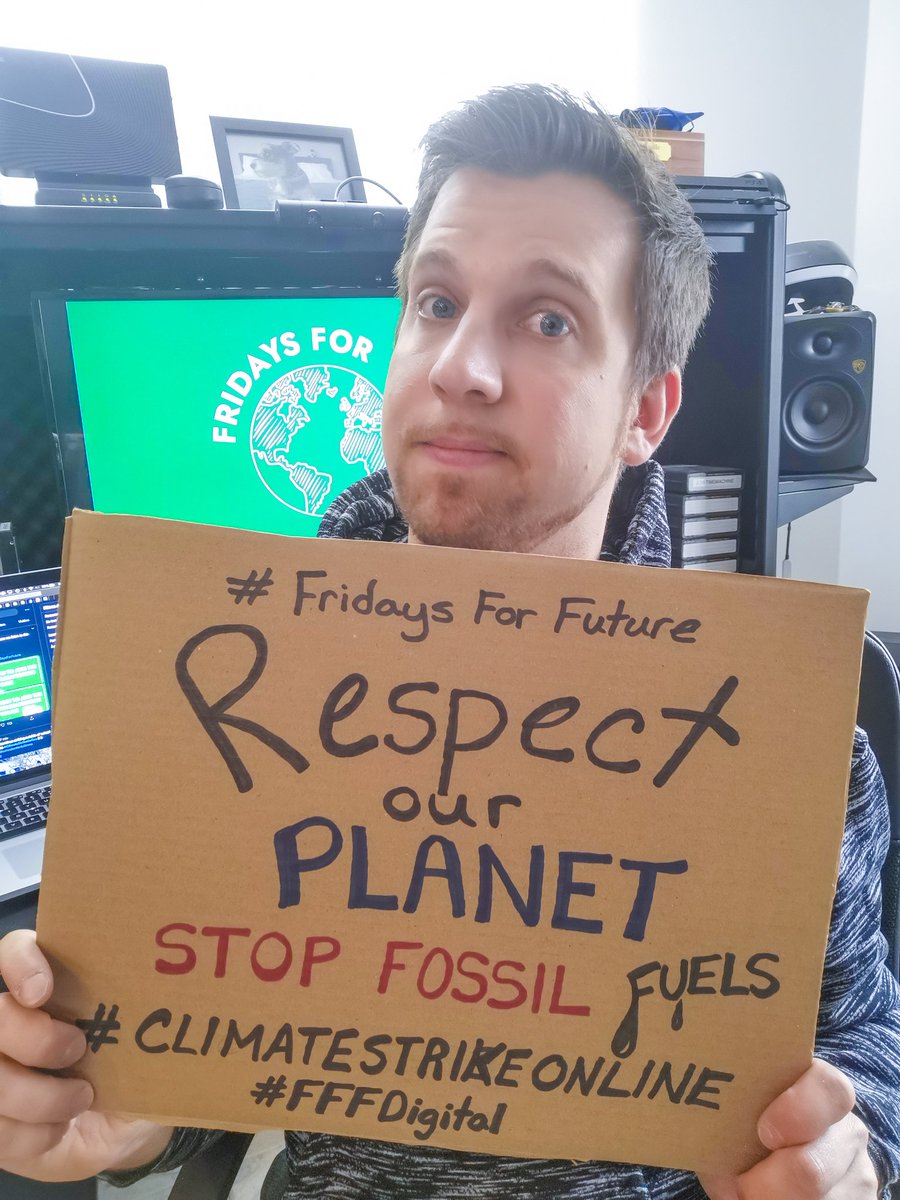 FRIDAYS FOR
# Fridays For Future
Respect
our
PLANET
STOP FOSSIL FUELS
#CLIMATESTRIKEONLINE
#FFFDigital